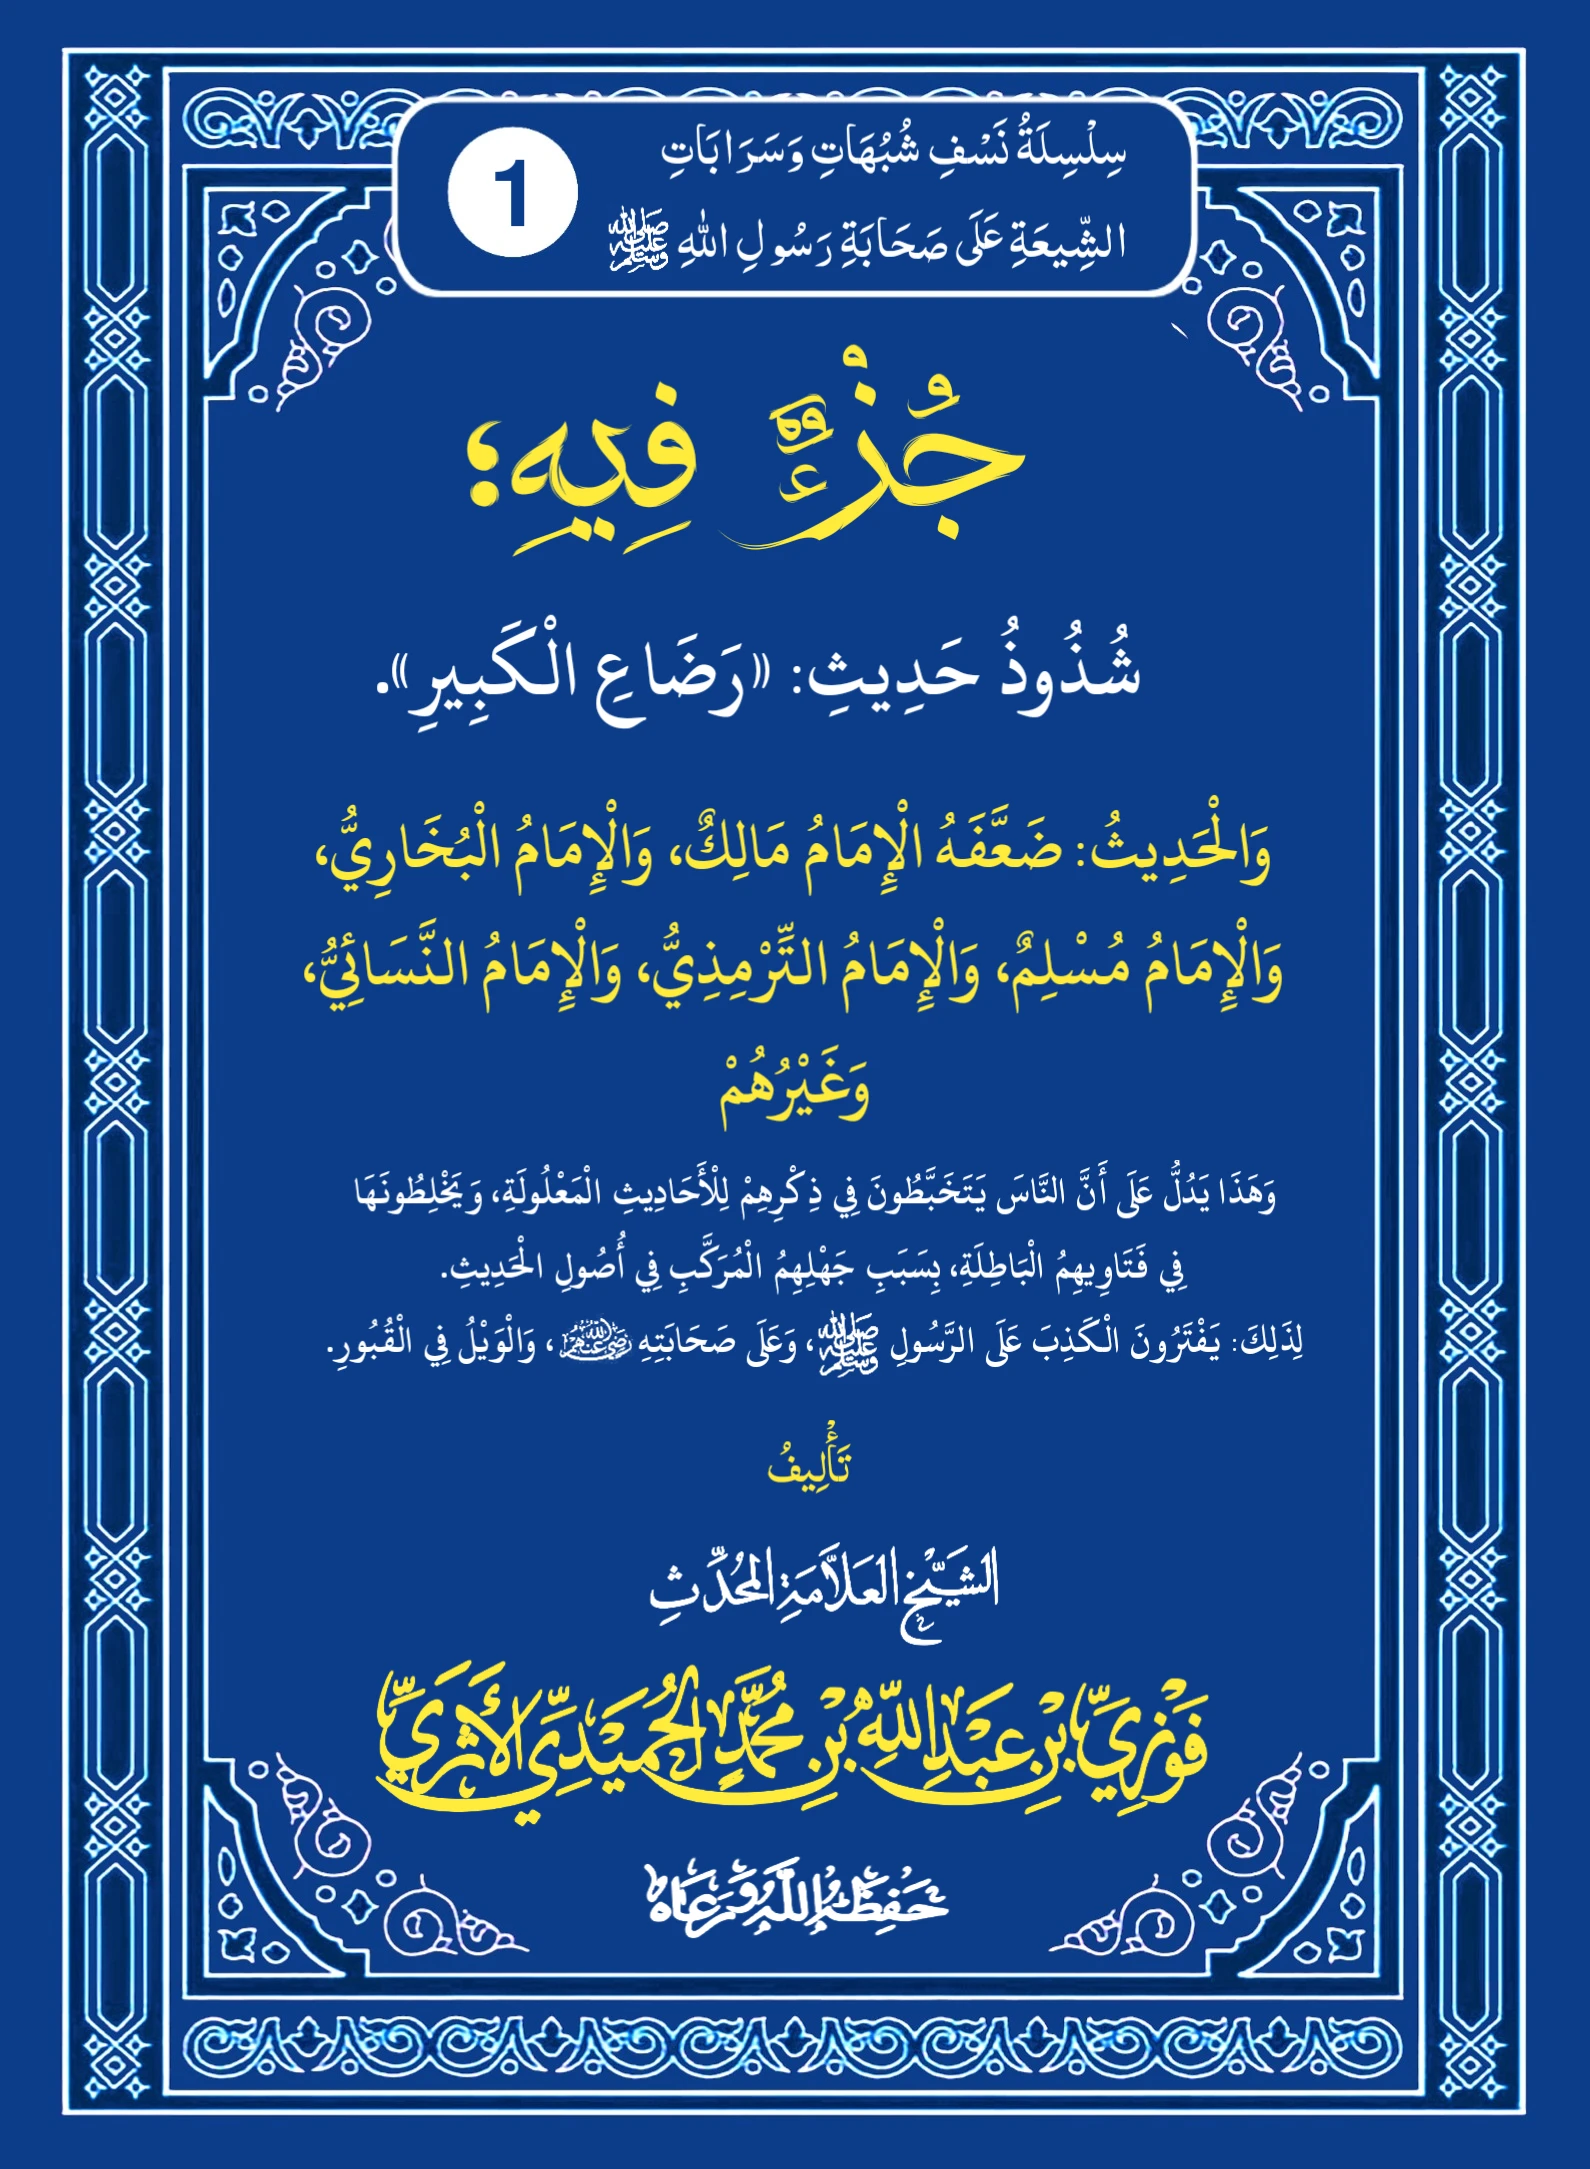 سِلْسِلَةُ نَسْفِ شُبُهَاتِ وَسَرَابَاتِ
الشِّيعَةِ عَلَى صَحَابَةِ رَسُولِ اللهِ ﷺ
1
جُزْءٌ فِيهِ؛
شُذُوذُ حَدِيثِ: «رَضَاعِ الْكَبِيرِ».
وَالْحَدِيثُ: ضَعَّفَهُ الْإِمَامُ مَالِكٌ، وَالْإِمَامُ الْبُخَارِيُّ،
وَالْإِمَامُ مُسْلِمٌ، وَالْإِمَامُ التِّرْمِذِيُّ، وَالْإِمَامُ النَّسَائِيُّ،
وَغَيْرُهُمْ
وَهَذَا يَدُلُّ عَلَى أَنَّ النَّاسَ يَتَخَبَّطُونَ فِي ذِكْرِهِمْ لِلْأَحَادِيثِ الْمَعْلُولَةِ، وَيَخْلِطُونَهَا
فِي فَتَاوِيهِمُ الْبَاطِلَةِ، بِسَبَبِ جَهْلِهِمُ الْمُرَكَّبِ فِي أُصُولِ الْحَدِيثِ.
لِذَلِكَ: يَفْتَرُونَ الْكَذِبَ عَلَى الرَّسُولِ ﷺ، وَعَلَى صَحَابَتِهِ رضي الله عنهم، وَالْوَيْلُ فِي الْقُبُورِ.
تَأْلِيفُ
الشَّيْخِ العَلاَّمَةِ المُحَدِّثِ
فَوْزِيِّ بْنِ عَبْدِ اللَّهِ بْنِ مُحَمَّدٍ الحُمَيْدِيِّ الأَثَرِيِّ
حَفِظَهُ اللَّهُ وَرَعَاهُ